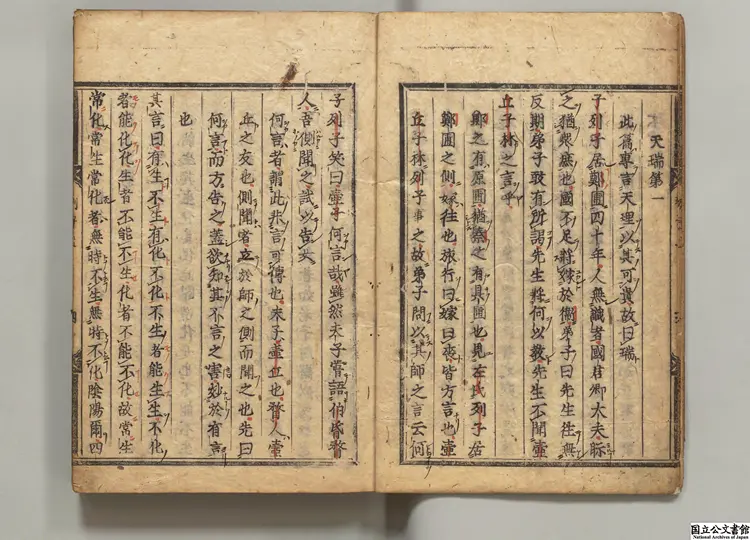 天瑞第一
此篇專言天理以其可貴故曰瑞
子列子居鄭圃四十年人無識者國君卿大夫眎
之猶衆庶也國不足將嫁於衛弟子曰先生徃無
反期弟子敢有所謁先生將何以敎先生不聞壷
丘子林之言乎
鄭之有原圃猶秦之有具圃也見左氏列子居
鄭圃之側嫁徃也旅行曰嫁曰
皆方言也壷
丘子林列子事之故弟子問以其師之言云何
子列子笑曰壷子何言哉雖然夫子嘗語伯昏瞀
人吾側聞之試以告女
何言者謂此非言可得也夫子壷丘也瞀人壷
丘之友也側聞者立於師之側而聞之也先曰
何言而方告之盖欲知其不言之害妙於有言
也
其言曰有生不生有化不化不生者能生生不化
者能化化生者不能不生化者不能不化故常生
常化常生常化者無時不生無時不化陰陽爾四
国立公文書館
National Archives of Japan